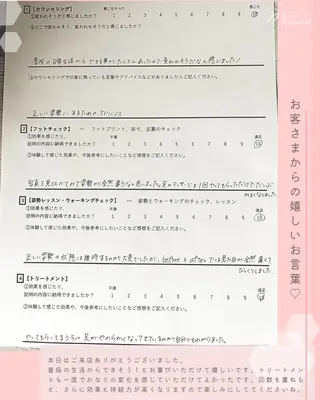 1 【カウンセリング】 感じなかった 感じた
①変われそうだと感じましたか? 1 2 3 4 5 6 7 8 9 10
②どこで変われそう、変われなそうと感じましたか?
普段の日常生活から できる事がたくさんあったので変われそうだなと感じました!
③カウンセリングで印象に残っている言葉やアドバイスなどがありましたらご記入ください。
正しい姿勢にするためのアドバイス
2 【フットチェック】 ー フットプリント、採寸、足裏のチェック
①効果を感じたり、 不満 満足
説明の内容に納得できましたか? 1 2 3 4 5 6 7 8 9 10
②体験して感じた効果や、今後参考にしたいことなど感想をご記入ください。
3 【姿勢レッスン・ウォーキングチェック】 ー 姿勢とウォーキングのチェック、レッスン
①効果を感じたり、 不満 満足
説明の内容に納得できましたか? 1 2 3 4 5 6 7 8 9 10
②体験して感じた効果や、今後参考にしたいことなど感想をご記入ください。
正しい姿勢の状態は維持するのが大変でしたが、beforeとafterでは見た目が全然違くて
びっくりしました
4 【トリートメント】
①効果を感じたり、 不満 満足
説明の内容に納得できましたか? 1 2 3 4 5 6 7 8 9 10
②体験して感じた効果や、今後参考にしたいことなど感想をご記入ください。
やってもらってるうちに 足がやわらかくなってきているのが自分でもわかりました。
お客さまからの嬉しいお言葉♡
本日はご来店ありがとうございました。
普段の生活からできそう!とお喜びいただけて嬉しいです。トリートメン
トも一度でかなりの変化を感じていただけてよかったです。回数を重ねる
と、さらに効果と持続力が高くなりますので楽しみにしててくださいね。